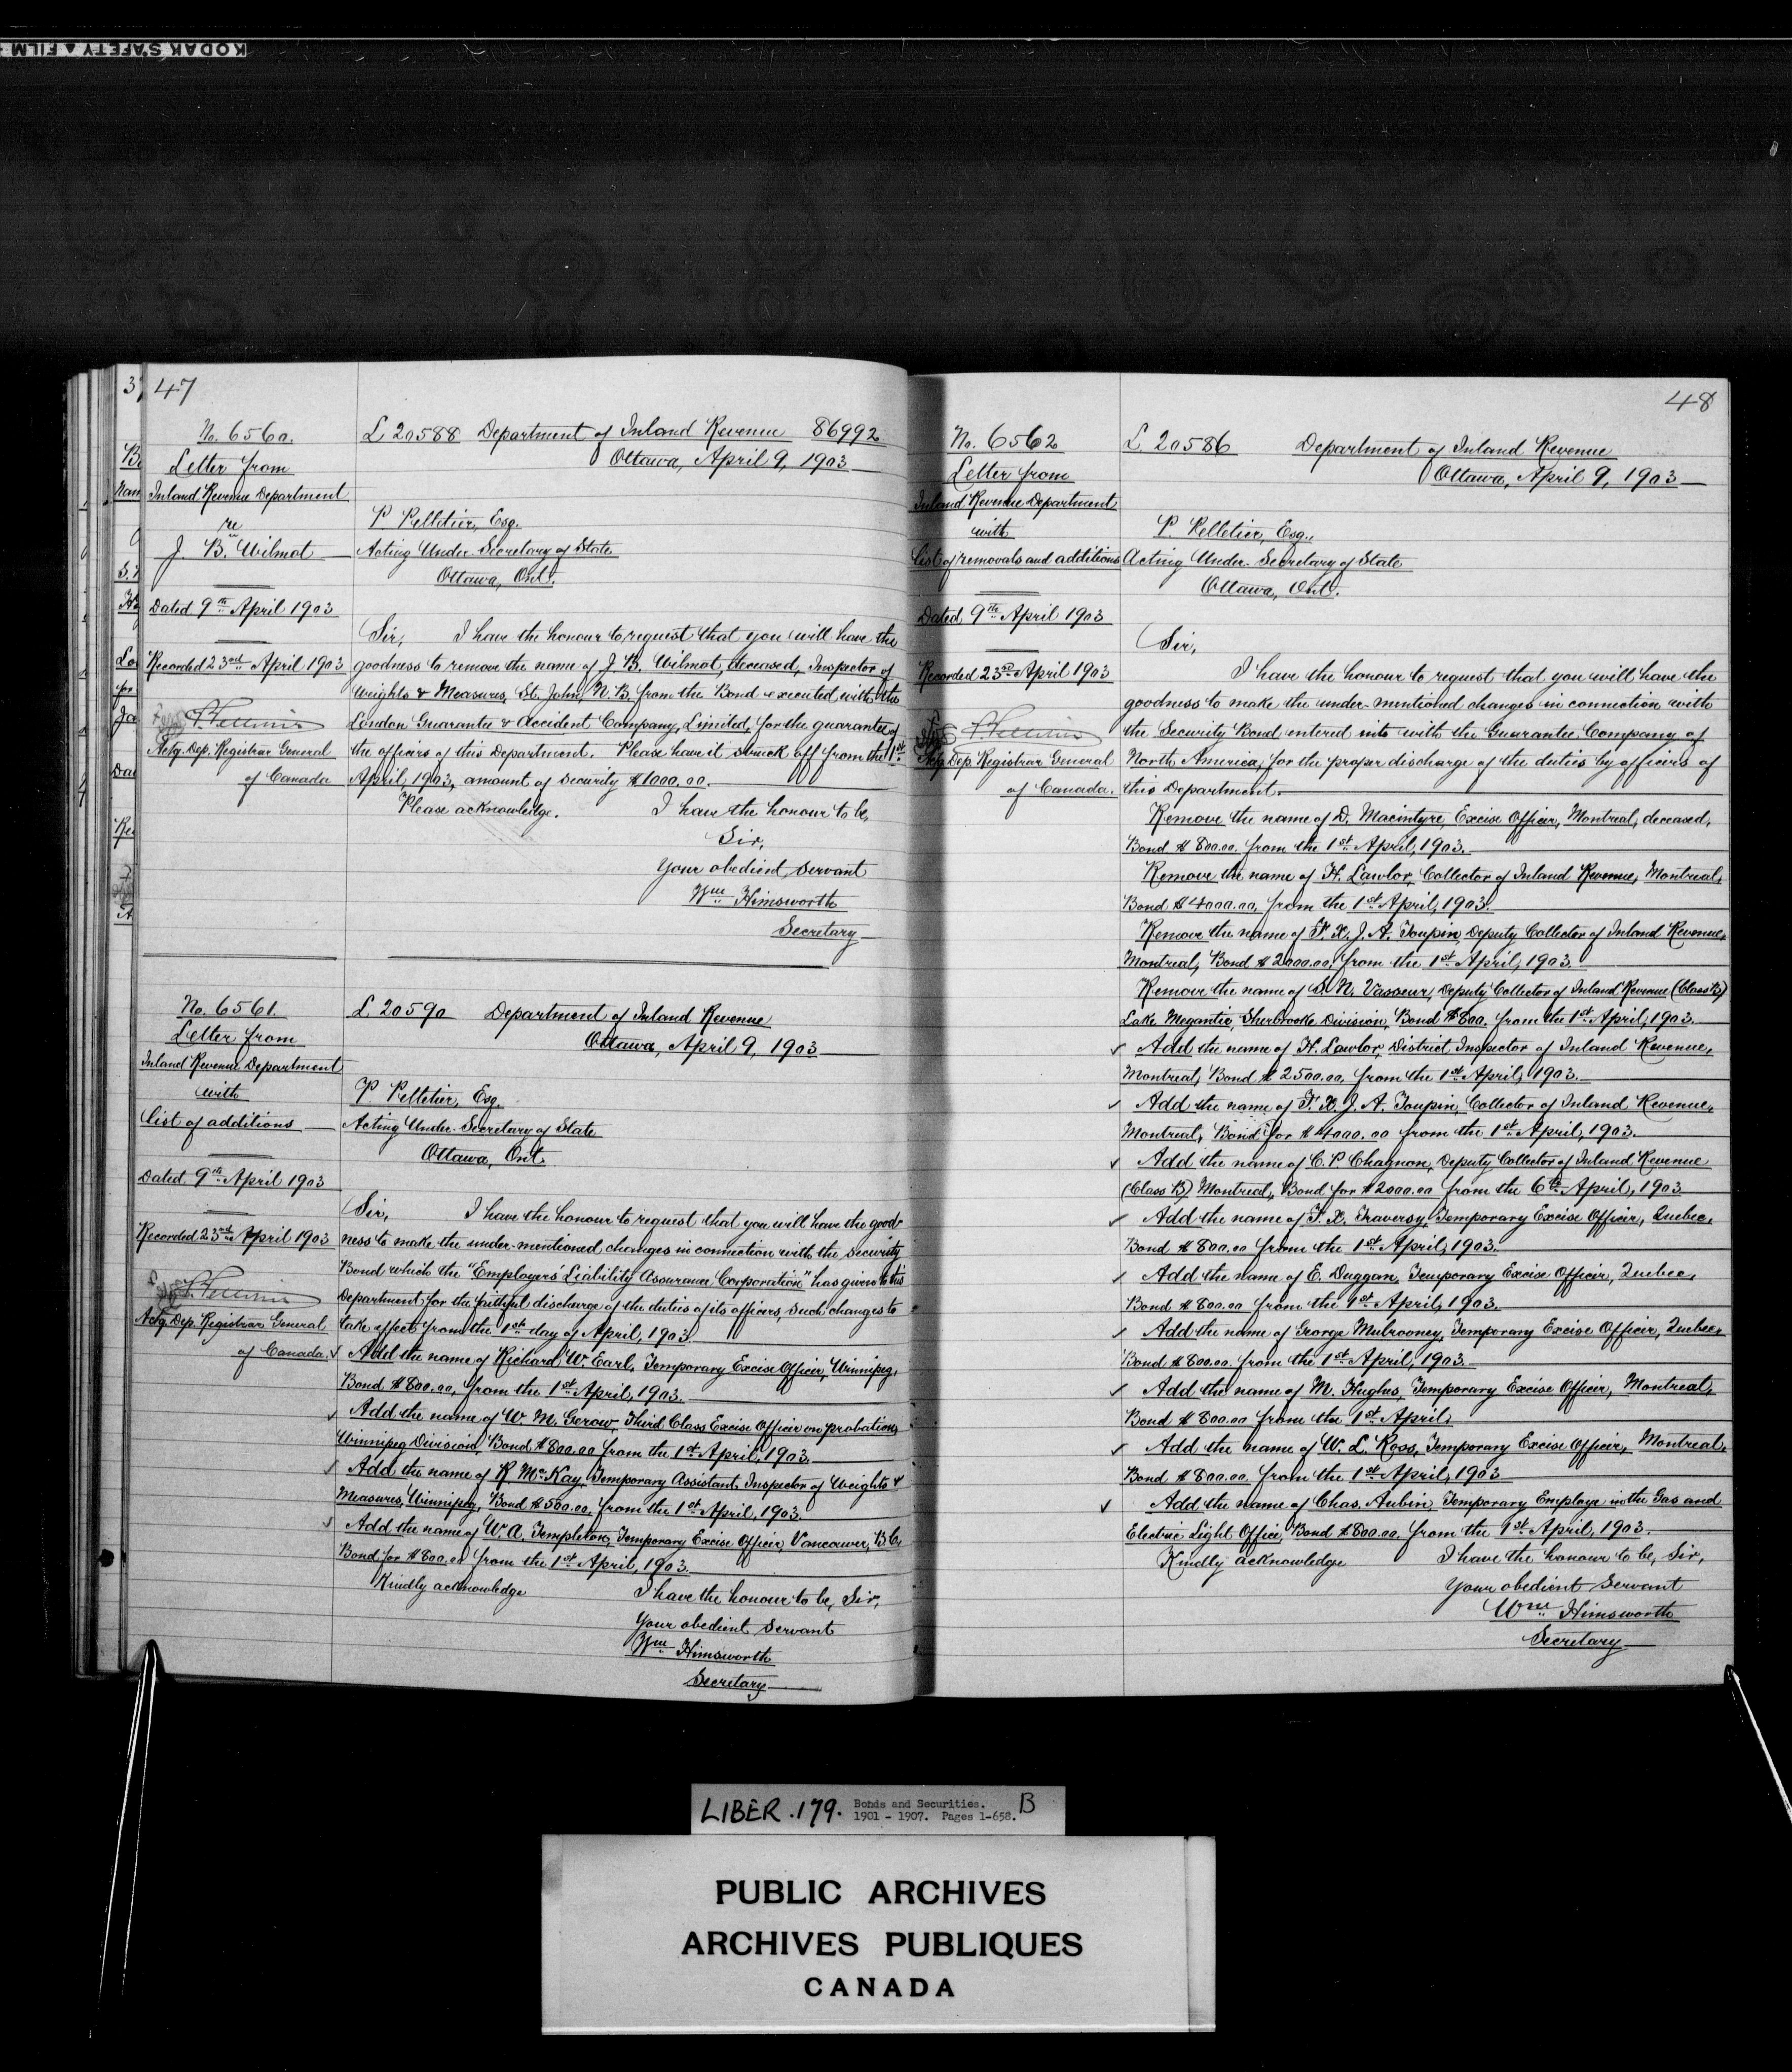 KODAK SAFETY ▲ FILM
47
No. 6560.
Letter from
Inland Revenue Department
re
J. B. Wilmot
Dated 9th April 1903
Recorded 23rd April 1903
Actg. Dep. Registrar General
of Canada
L 20588 Department of Inland Revenue 86992
Ottawa, April 9, 1903
P. Pelletier, Esq.
Acting Under-Secretary of State
Ottawa, Ont.
Sir, I have the honour to request that you will have the
goodness to remove the name of J. B. Wilmot, deceased, Inspector of
Weights & Measures, St. John, N. B. from the Bond executed with the
London Guarantee & Accident Company, Limited, for the guarantee of
the officers of this Department. Please have it struck off from the 1st
April, 1903, amount of security $1000.00.
Please acknowledge. I have the honour to be,
Sir,
Your obedient servant
Wm Himsworth
Secretary
No. 6561.
Letter from
Inland Revenue Department
with
list of additions
Dated 9th April 1903
Recorded 23rd April 1903
Actg. Dep. Registrar General
of Canada.
L 20590 Department of Inland Revenue
Ottawa, April 9, 1903
P Pelletier, Esq.
Acting Under-Secretary of State
Ottawa, Ont.
Sir, I have the honour to request that you will have the good-
ness to make the under-mentioned changes in connection with the security
Bond which the "Employers' Liability Assurance Corporation" has given to this
Department for the faithful discharge of the duties of its officers, such changes to
take effect from the 1st day of April, 1903.
✓ Add the name of Richard W. Earl, Temporary Excise Officer, Winnipeg,
Bond $800.00, from the 1st April, 1903.
✓ Add the name of W. M. Gerow, Third Class Excise Officer on probation,
Winnipeg Division, Bond $800.00 from the 1st April, 1903.
✓ Add the name of R. McKay, Temporary Assistant Inspector of Weights &
Measures, Winnipeg, Bond $500.00, from the 1st April, 1903.
✓ Add the name of W. A. Templeton, Temporary Excise Officer, Vancouver, B.C,
Bond for $800.00 from the 1st April, 1903.
Kindly acknowledge I have the honour to be, Sir,
Your obedient servant
Wm Himsworth
Secretary
48
No. 6562
Letter from
Inland Revenue Department
with
list of removals and additions
Dated 9th April 1903
Recorded 23rd April 1903
Actg. Dep. Registrar General
of Canada.
L 20586 Department of Inland Revenue
Ottawa, April 9, 1903
P. Pelletier, Esq.,
Acting Under-Secretary of State
Ottawa, Ont.
Sir,
I have the honour to request that you will have the
goodness to make the under-mentioned changes in connection with
the Security Bond entered into with the Guarantee Company of
North America, for the proper discharge of the duties by officers of
this Department.
Remove the name of D. Macintyre, Excise Officer, Montreal, deceased,
Bond $800.00. from the 1st April, 1903.
Remove the name of H. Lawlor, Collector of Inland Revenue, Montreal,
Bond $4000.00, from the 1st April, 1903.
Remove the name of F. X. J. A. Toupin, Deputy Collector of Inland Revenue,
Montreal, Bond $2000.00, from the 1st April, 1903.
Remove the name of S. N. Vasseur, Deputy Collector of Inland Revenue (Class B)
Lake Megantic, Sherbrooke Division, Bond $800. from the 1st April, 1903.
✓ Add the name of H. Lawlor, District Inspector of Inland Revenue,
Montreal, Bond $2500.00, from the 1st April, 1903.
✓ Add the name of F. X. J. A. Toupin, Collector of Inland Revenue,
Montreal, Bond for $4000.00 from the 1st April, 1903.
✓ Add the name of C. P. Chagnon, Deputy Collector of Inland Revenue
(Class B) Montreal, Bond for $2000.00 from the 6th April, 1903
✓ Add the name of F. X. Traversy, Temporary Excise Officer, Quebec,
Bond $800.00 from the 1st April, 1903.
✓ Add the name of E. Duggan, Temporary Excise Officer, Quebec,
Bond $800.00 from the 1st April, 1903.
✓ Add the name of George Mulrooney, Temporary Excise Officer, Quebec,
Bond $800.00. from the 1st April, 1903.
✓ Add the name of M. Hughes, Temporary Excise Officer, Montreal,
Bond $800.00 from the 1st April.
✓ Add the name of W. L. Ross, Temporary Excise Officer, Montreal,
Bond $800.00. from the 1st April, 1903
✓ Add the name of Chas. Aubin, Temporary Employe in the Gas and
Electric Light Office, Bond $800.00, from the 1st April, 1903.
Kindly acknowledge I have the honour to be, Sir,
Your obedient servant
Wm Himsworth
Secretary
LIBER .179. Bonds and Securities. B
1901 - 1907. Pages 1-658.
PUBLIC ARCHIVES
ARCHIVES PUBLIQUES
CANADA